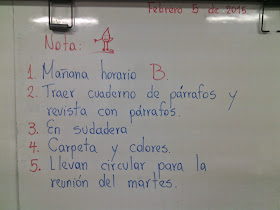 Febrero 5 de 2015.
Nota:
1. Mañana horario B.
2. Traer cuaderno de párrafos y
revista con párrafos.
3. En sudadera
4. Carpeta y colores.
5. Llevan circular para la
reunión del martes.